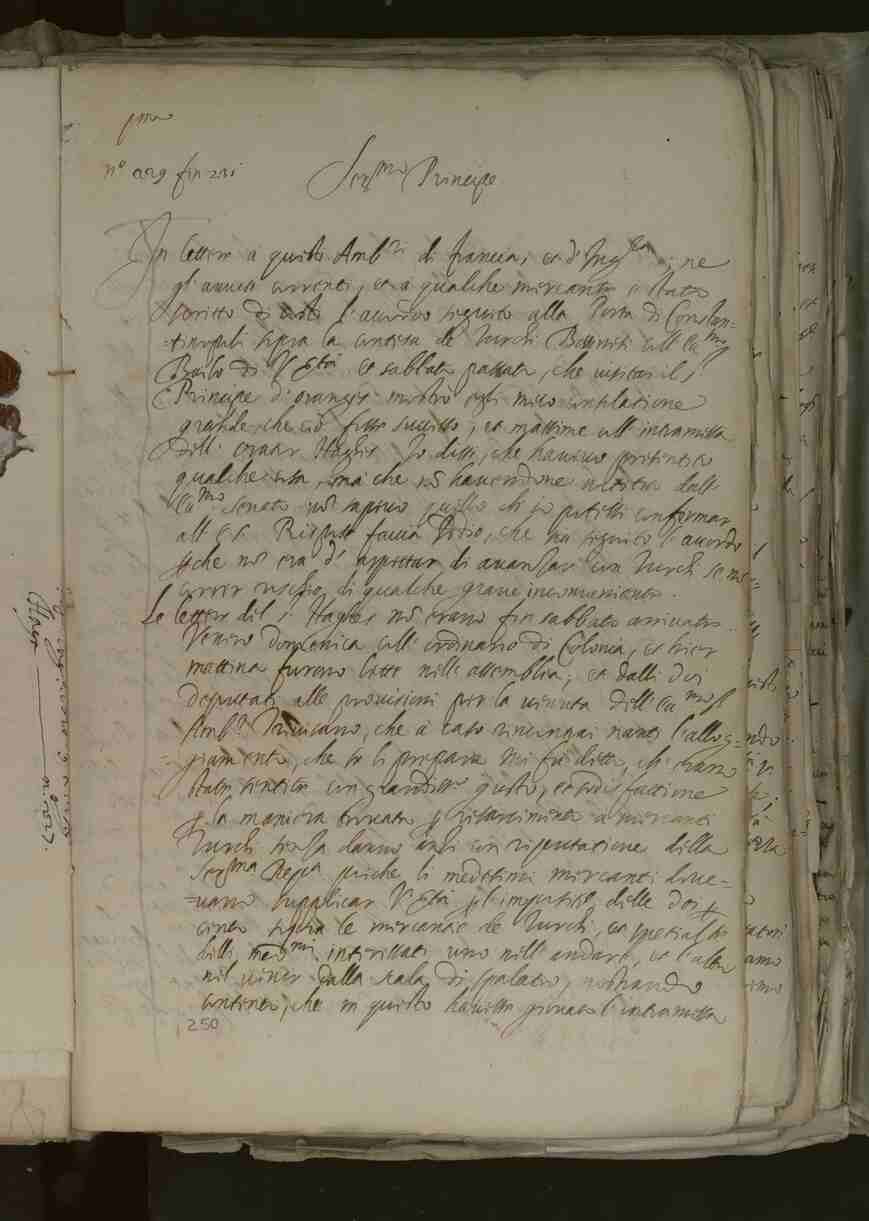 p.ma
n.o 229 fin 231
Ser.mo Principe
In lettere a questo Amb.r di Francia, et d'Ingh.ra; ne
gl'avvisi correnti, et a qualche mercante è stato
scritto di costì l'accordo seguito alla Porta di Constan=
=tinopoli sopra la contesa de Turchi Bossinesi coll' Ecc.mo
Bailo di V. Ser.tà et sabbato passato, che visitai il s.r
Principe d'Oranges mostrò egli meco consolatione
grande, che ciò fosse successo, et massime coll'intromissa
dell' Orator Haghes. Io dissi, che havevo presentito
qualche cosa, ma che non havendone notitia dall'
Ecc.mo Senato non sapevo quello che io potessi confermar
all' E. S. Rispose faccia Iddio, che sia seguito l'accordo
che non era d'aspettar di avanzar con Turchi se non
correr rischio di qualche grave inconveniente.
Le lettere del s.r Haghes non erano fin sabbato arrivate.
Venero Domenica coll' ordinario di Colonia, et hier
mattina furono lette nell'assemblea; et dalli doi
deputati alle provisioni per la venuta dell' Ecc.mo s.r
Amb.r Trivisano, che a caso rincontrai nanti l'allog=
=giamento, che se li prepara mi fu detto, che erano
state sentite con grandiss.o gusto, et sodisfattione
la maniera trovata per risarcimento a mercanti
Turchi senza danno anzi con riputatione della
Ser.ma Rep.ca poiche li medesimi mercanti dove=
=vano supplicar V. Ser.tà per l'impositione delle doi per
cento sopra le mercantie de Turchi, et spetialm.te
delli med.mi interessati uno nell' andare, et l'altro
nel venir dalla scala di Spalato, mostrando
contento, che in questo havesse giovato l'intromissa
250